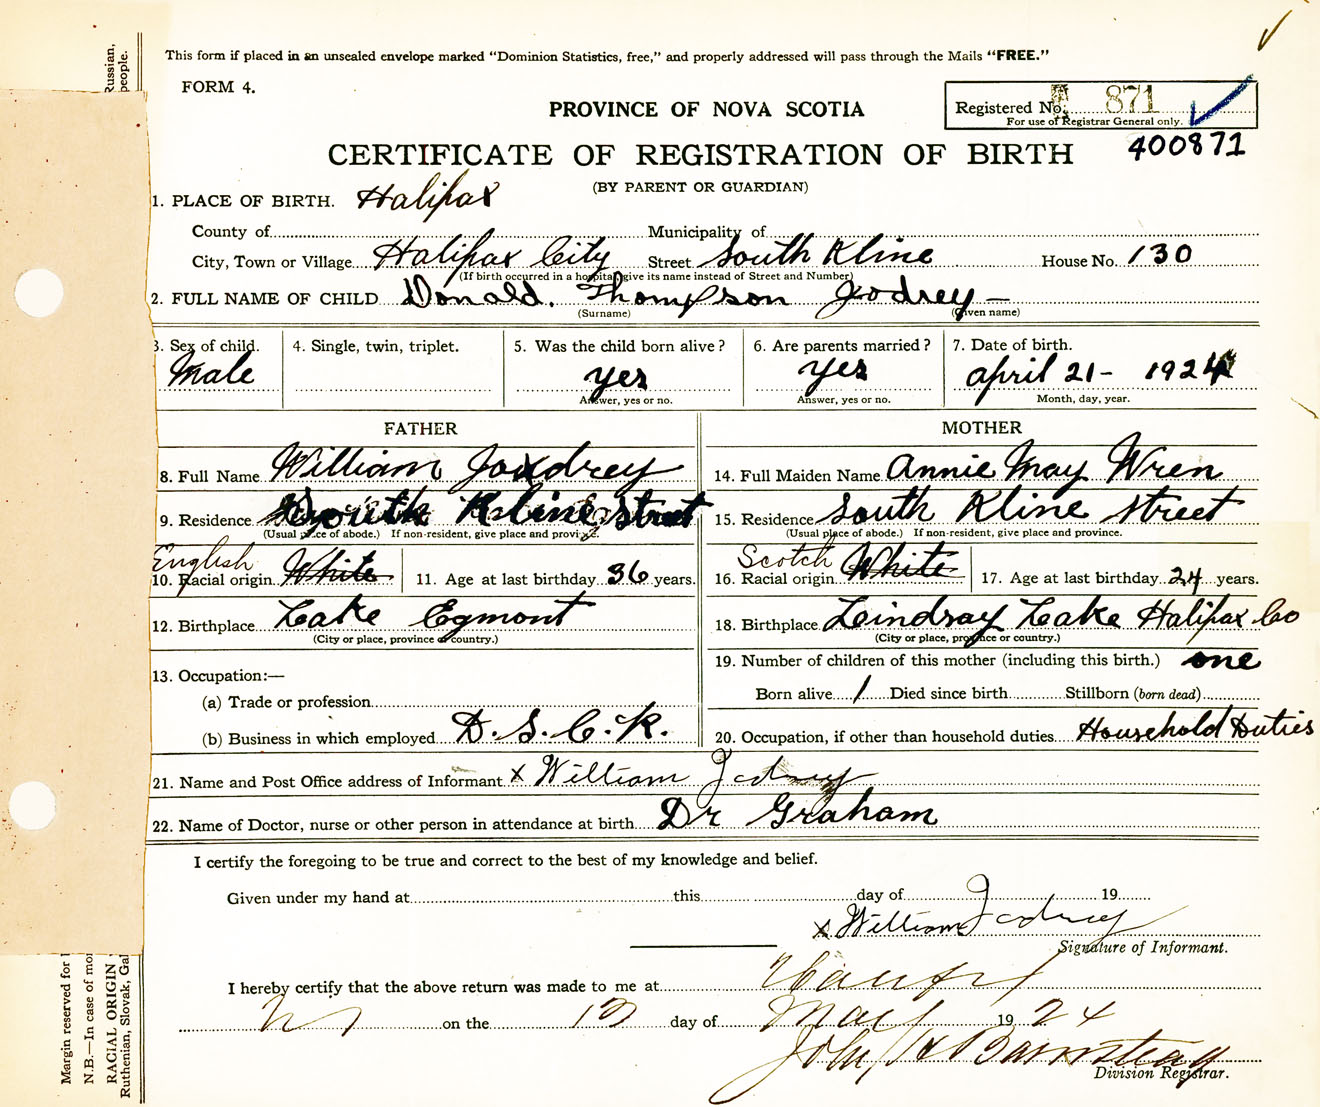 Russian,
people.
This form if placed in an unsealed envelope marked "Dominion Statistics, free," and properly addressed will pass through the Mails "FREE."
FORM 4.
Registered No. A 871
For use of Registrar General only.
PROVINCE OF NOVA SCOTIA
400871
CERTIFICATE OF REGISTRATION OF BIRTH
(BY PARENT OR GUARDIAN)
1. PLACE OF BIRTH. Halifax
County of Municipality of
City, Town or Village Halifax City Street South Kline House No. 130
(If birth occurred in a hospital give its name instead of Street and Number)
2. FULL NAME OF CHILD Donald. Thompson Jodrey —
(Surname) (Given name)
3. Sex of child. 4. Single, twin, triplet. 5. Was the child born alive? 6. Are parents married? 7. Date of birth.
Male yes yes april 21 - 1924
Answer, yes or no. Answer, yes or no. Month, day, year.
FATHER MOTHER
8. Full Name William Joudrey 14. Full Maiden Name Annie May Wren
9. Residence South Kline street 15. Residence South Kline street
(Usual place of abode.) If non-resident, give place and province. (Usual place of abode.) If non-resident, give place and province.
English Scotch
10. Racial origin White 11. Age at last birthday 36 years. 16. Racial origin White 17. Age at last birthday 24 years.
12. Birthplace Lake Egmont 18. Birthplace Lindsay Lake Halifax Co
(City or place, province or country.) (City or place, province or country.)
13. Occupation:— 19. Number of children of this mother (including this birth.) one
(a) Trade or profession Born alive 1 Died since birth Stillborn (born dead)
(b) Business in which employed D. S. C. R. 20. Occupation, if other than household duties Household Duties
21. Name and Post Office address of Informant x William Jodrey
22. Name of Doctor, nurse or other person in attendance at birth Dr Graham
I certify the foregoing to be true and correct to the best of my knowledge and belief.
Given under my hand at this day of 19
x William Jodrey
Signature of Informant.
I hereby certify that the above return was made to me at Halifax
N S on the 13 day of May 1924
John H Barnstead
Division Registrar.
Margin reserved for
N.B.—In case of mo
RACIAL ORIGIN
Ruthenian, Slovak, Gal